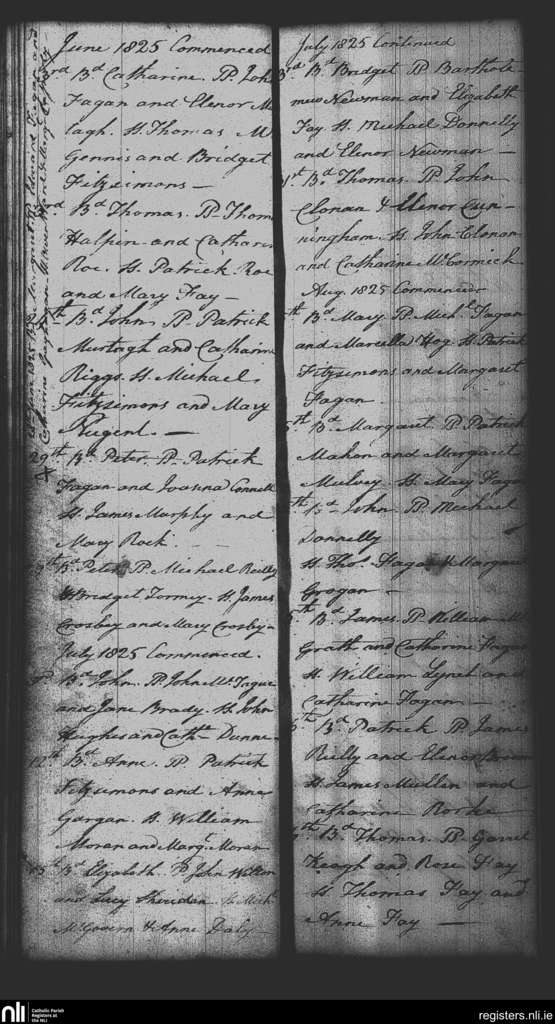 June 1825 Commenced
3rd Bd Catharine. P. John
Fagan and Elenor M
lagh. H. Thomas M
Gennis and Bridget
Fitzsimons —
rd Bd Thomas. P. Thom
Halpin and Catharin
Roe. H. Patrick Roe
and Mary Fay —
th Bd John, P. Patrick
Murtagh and Catharine
Riggs. H. Michael
Fitzsimons and Mary
Nugent. —
29th Bd Peter. P. Patrick
Fagan and Joanna Connell
H. James Murphy and
Mary Rock. —
th Bd Peter P. Michael Reilly
& Bridget Tormey. H. James
Crosbey and Mary Crosby —
July 1825 Commenced.
Bd John. P. John McTague
and Jane Brady. H. John
Hughes and Cath. Dunne
12th Bd Anne. P. Patrick
Fitzsimons and Anne
Gargan. H. William
Moran and Margt Moran
Bd Elizabeth. P. John
and Lucy Sheridan. Michl
McGovern & Anne Daly —
July 1825 Continued
3d Bd Bridget P. Bartholo-
mew Newman and Elizabeth
Fay H. Michael Donnelly
and Elenor Newman —
st Bd Thomas. P. John
Clonan & Elenor Cun-
ningham. H. John Clonan
and Catharine McCormick
Aug. 1825 Commenced
th Bd Mary P. Michl Fagan
and Marcella Hog H. Patrick
Fitzsimons and Margaret
Fagan
th Bd Margaret P. Patrick
Mahon and Margaret
Mulvey. H. Mary Fagan
th Bd John P. Michael
Donnelly
H. Thos Fagan & Margaret
Grogan —
th Bd James. P. William Mc
Grath and Catharine Fagan
H. William Lynch and
Catharine Fagan —
th Bd Patrick P. James
Reilly and Elenor Brown
H. James Mullen and
Catharine Rorke
th Bd Thomas. P. Garret
Keogh and Rose Fay
H. Thomas Fay and
Anne Fay —
nli
Catholic Parish
Registers at
the NLI
registers.nli.ie